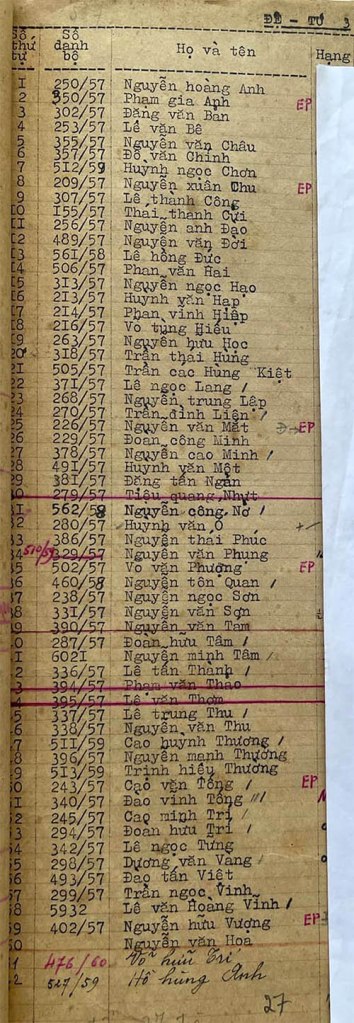 ĐỆ - TỨ 3
Số thứ tự Số danh bộ Họ và tên Hạng
I 250/57 Nguyễn hoàng Anh
2 350/57 Phạm gia Anh EP
3 302/57 Đặng văn Ban
4 253/57 Lê văn Bê
5 355/57 Nguyễn văn Châu
6 357/57 Đỗ văn Chinh
7 5I2/59 Huỳnh ngọc Chơn
8 209/57 Nguyễn xuân Chu EP
9 307/57 Lê thành Công
I0 I55/57 Thái thanh Cửi
II 256/57 Nguyễn anh Đạo
I2 489/57 Nguyễn văn Đời
I3 56I/58 Lê hồng Đức
I4 506/57 Phan văn Hai
I5 3I3/57 Nguyễn ngọc Hạo
I6 2I3/57 Huỳnh văn Hạp
I7 2I4/57 Phan vinh Hiệp
I8 2I6/57 Võ tung Hiếu
I9 263/57 Nguyễn hữu Học
20 3I8/57 Trần thái Hùng
2I 505/57 Trần các Hùng Kiệt
22 37I/57 Lê ngọc Lang /
23 268/57 Nguyễn trung Lập
24 270/57 Trần đình Liên /
25 226/57 Nguyễn văn Mắt EP
26 229/57 Đoàn công Minh
27 378/57 Nguyễn cao Minh /
28 49I/57 Huỳnh văn Một
29 38I/57 Đặng tấn Ngân
30 279/57 Tiêu quang Nhựt
3I 562/58 Nguyễn công Nở /
32 280/57 Huỳnh văn Ô +/
33 386/57 Nguyễn thái Phúc
34 510/59 329/57 Nguyễn văn Phụng
35 502/57 Võ văn Phượng EP
36 460/58 Nguyễn tôn Quan /
37 238/57 Nguyễn ngọc Sơn
38 33I/57 Nguyễn văn Sơn
39 390/57 Nguyễn văn Tam
40 287/57 Đoàn hữu Tâm /
4I 602I Nguyễn minh Tâm /
42 336/57 Lê tấn Thành /
43 394/57 Phạm văn Thao
44 395/57 Lê văn Thơm
45 337/57 Lê trung Thu /
46 338/57 Nguyễn văn Thu
47 5II/59 Cao huỳnh Thương /
48 396/57 Nguyễn mạnh Thường
49 5I3/59 Trịnh hiếu Thương
50 243/57 Cao văn Tòng / EP
5I 340/57 Đào vinh Tòng ///
52 245/57 Cao minh Trí /
53 294/57 Đoàn hưu Trí /
54 342/57 Lê ngọc Tưng
55 298/57 Dương văn Vang
56 493/57 Đào tấn Việt
57 299/57 Trần ngọc Vinh
58 5932 Lê văn Hoàng Vinh /
59 402/57 Nguyễn hữu Vượng EP
60 Nguyễn văn Hoa
61 476/60 Võ hữu Trí
62 527/59 Hồ hùng Anh
27